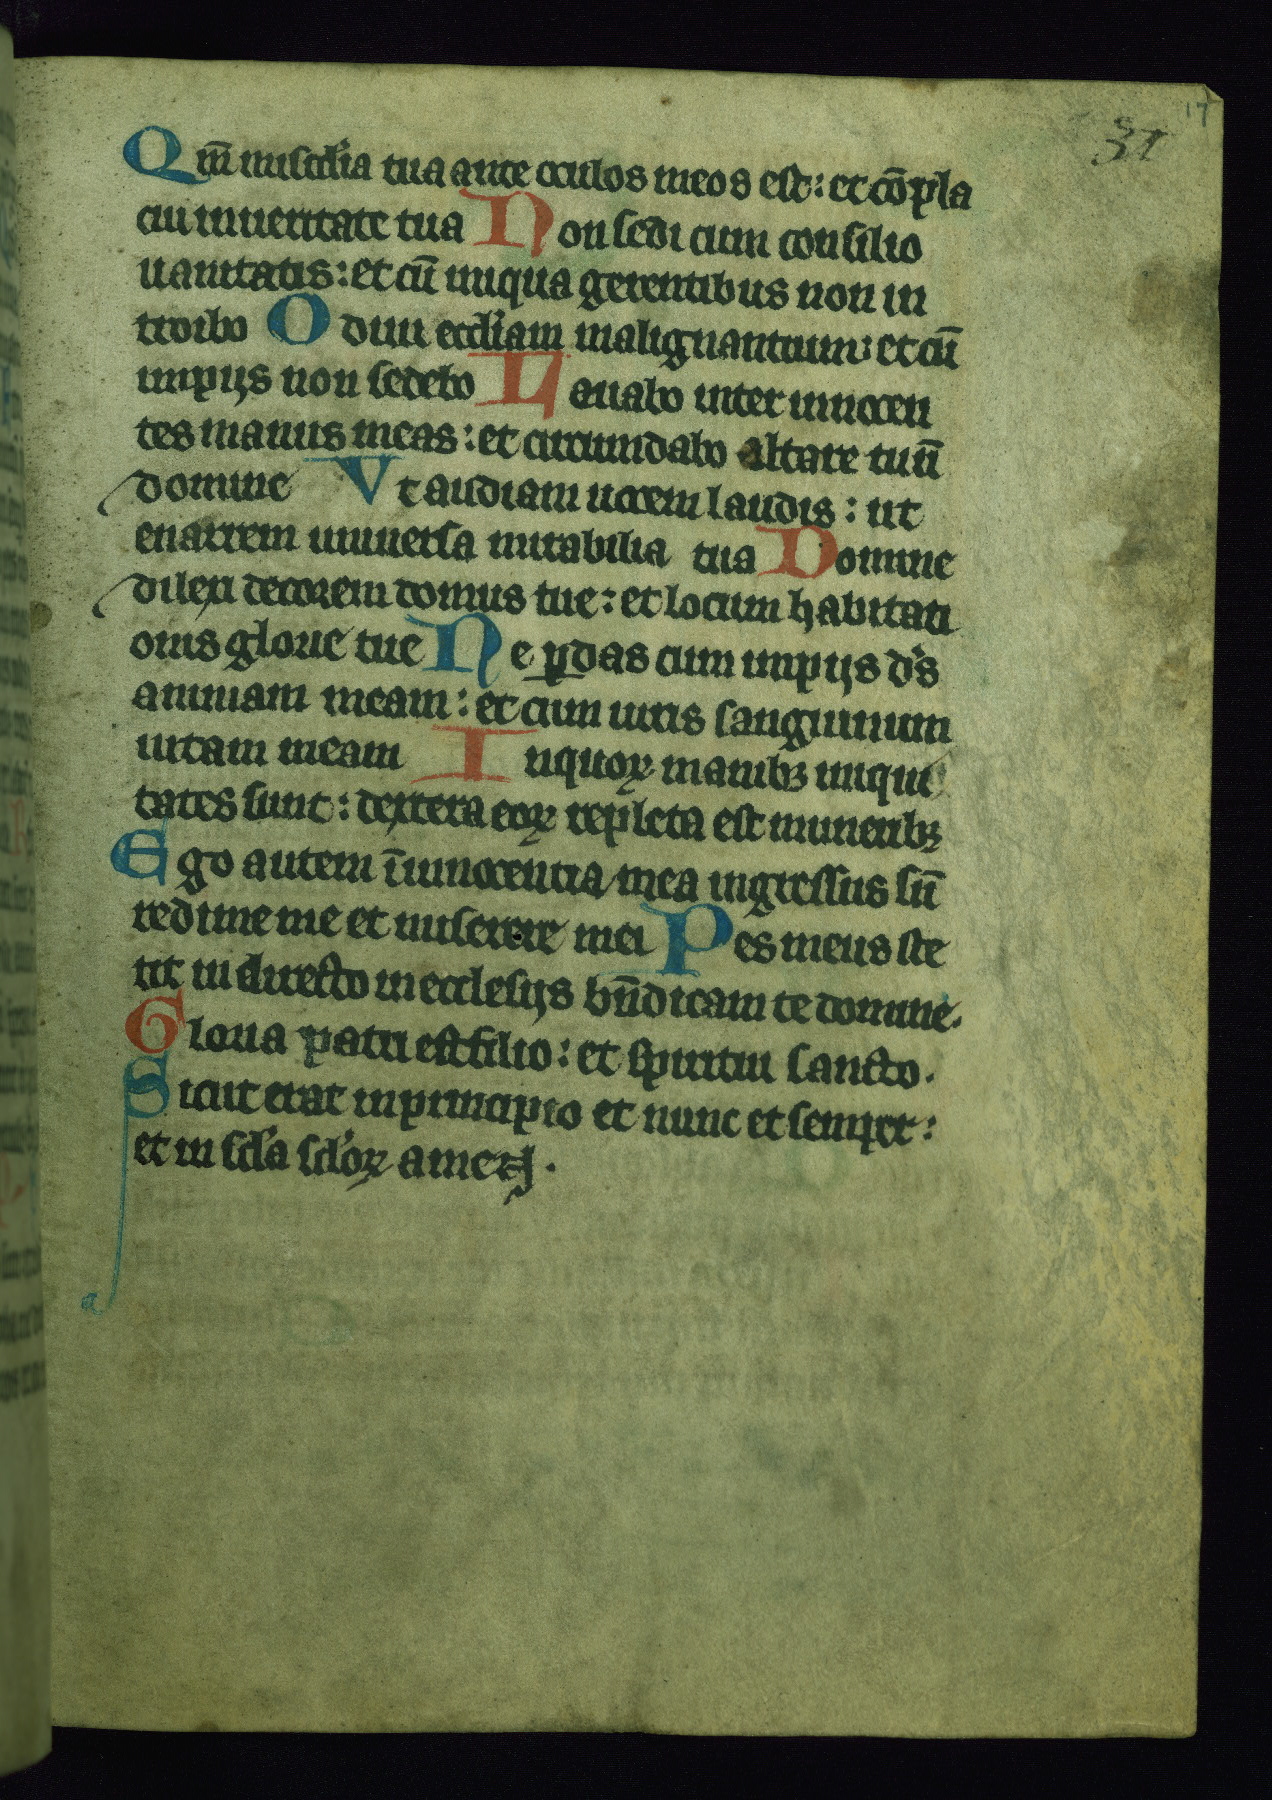 17
37
Qm̄ misc̄dia tua ante oculos meos est: et cōpla
cui in ueritate tua Non sedi cum consilio
uanitatis: et cū iniqua gerentibus non in
troibo Odiui eccl̄iam malignantium: et cū
impijs non sedebo Lauabo inter innocen
tes manus meas: et circumdabo altare tuū
domine Vt audiam uocem laudis: ut
enarrem uniuersa mirabilia tua Domine
dilexi decorem domus tue: et locum habitati
onis glorie tue Ne ꝑdas cum impijs d's
animam meam: et cum uiris sanguinum
uitam meam In quoꝝ manibꝫ iniqui
tates sunt: dextera eoꝝ repleta est muneribꝫ
Ego autem ī innocentia mea ingressus sū
redime me et miserere mei Pes meus ste
tit in directo in ecclesijs bn̄dicam te domine.
Gloria patri est filio: et spiritui sancto.
Sicut erat in principio et nunc et semper:
et in scl'a scl'oꝝ amen.